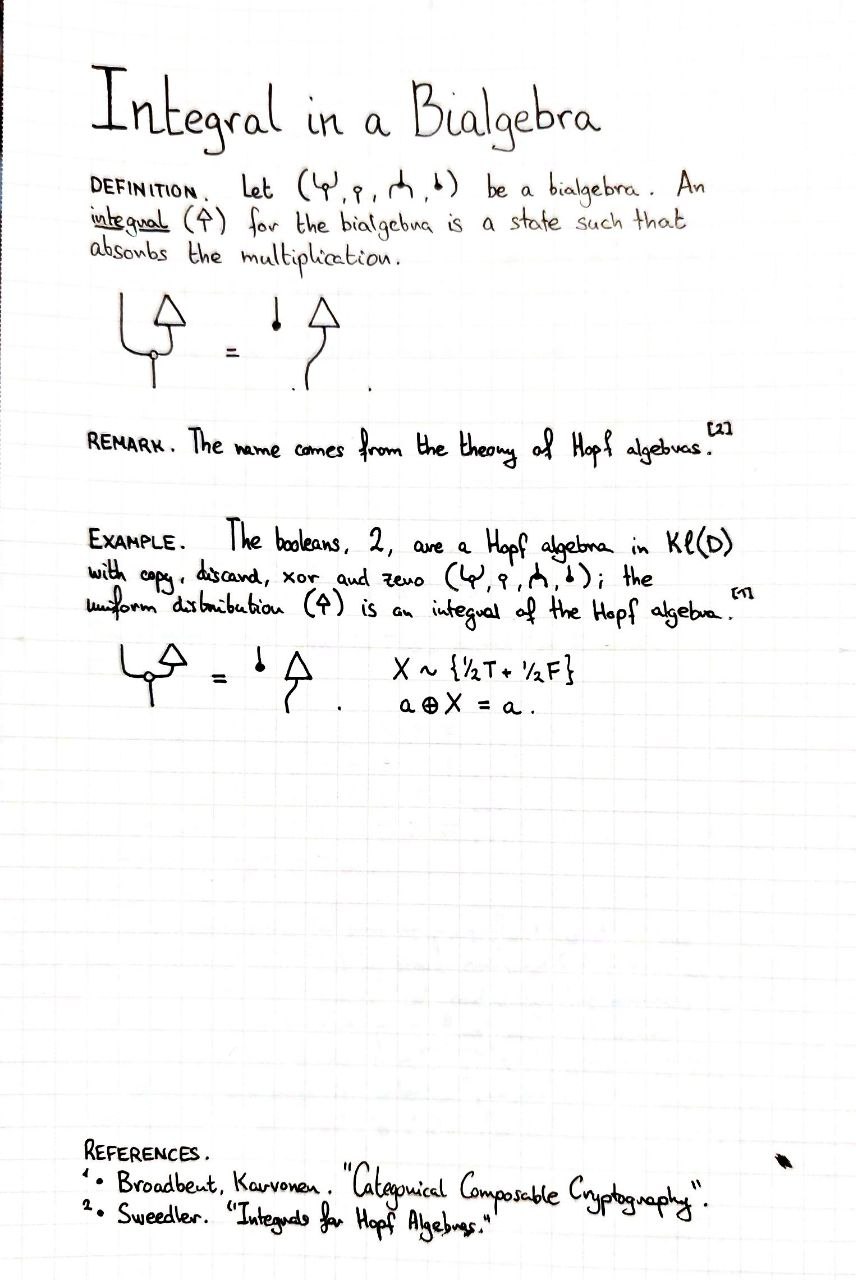 Integral in a Bialgebra
DEFINITION. Let ( , , , ) be a bialgebra. An
integral ( ) for the bialgebra is a state such that
absorbs the multiplication.
= .
REMARK. The name comes from the theory of Hopf algebras.[2]
EXAMPLE. The booleans, 2, are a Hopf algebra in Kl(D)
with copy, discard, xor and zero ( , , , ); the
uniform distribution ( ) is an integral of the Hopf algebra.[1]
= . X ~ {½T + ½F}
a ⊕ X = a.
REFERENCES.
1. Broadbent, Karvonen. "Categorical Composable Cryptography".
2. Sweedler. "Integrals for Hopf Algebras."